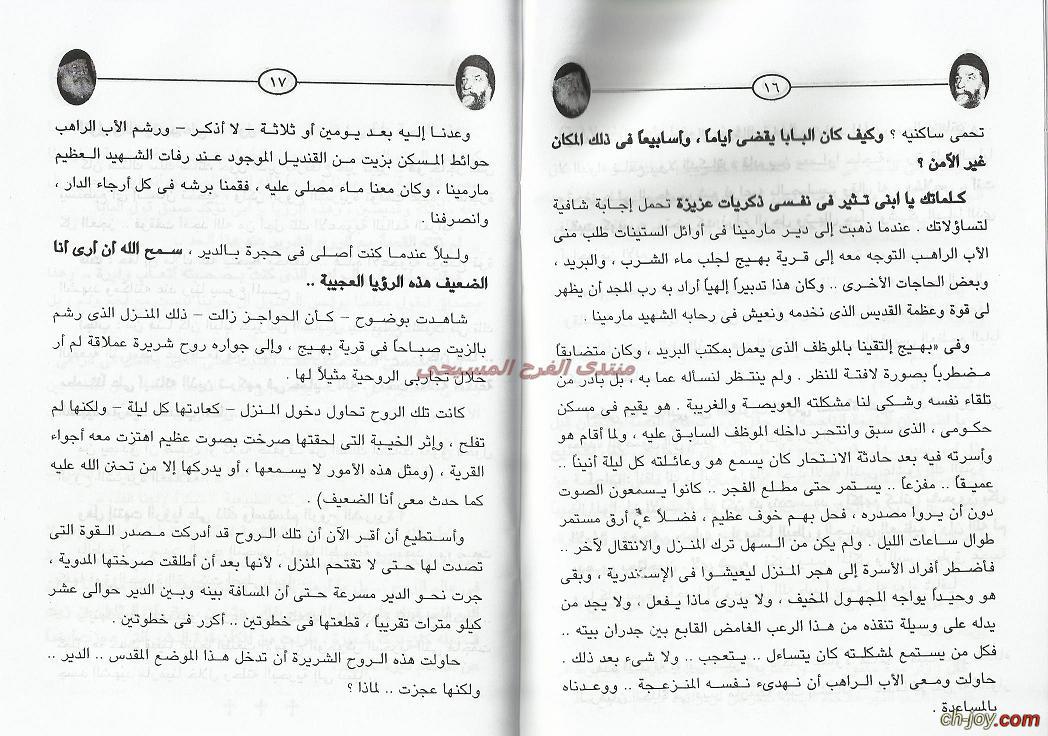 ١٦
تحمى ساكنيه ؟ وكيف كان البابا يقضى أياماً ، وأسابيعاً فى ذلك المكان
غير الآمن ؟
كلماتك يا ابنى تثير فى نفسى ذكريات عزيزة تحمل إجابة شافية
لتساؤلاتك . عندما ذهبت إلى دير مارمينا فى أوائل الستينات طلب منى
الأب الراهب التوجه معه إلى قرية بهيج لجلب ماء الشرب ، والبريد ،
وبعض الحاجات الأخرى .. وكان هذا تدبيراً إلهياً أراد به رب المجد أن يظهر
لى قوة وعظمة القديس الذى نخدمه ونعيش فى رحابه الشهيد مارمينا .
وفى «بهيج إلتقينا بالموظف الذى يعمل بمكتب البريد ، وكان متضايقاً
مضطرباً بصورة لافتة للنظر . ولم ينتظر لنسأله عما به ، بل بادر من
تلقاء نفسه وشكى لنا مشكلته العويصة والغريبة . هو يقيم فى مسكن
حكومى ، الذى سبق وانتحر داخله الموظف السابق عليه ، ولما أقام هو
وأسرته فيه بعد حادثة الانتحار كان يسمع هو وعائلته كل ليلة أنيناً ..
عميقاً .. مفزعاً .. يستمر حتى مطلع الفجر .. كانوا يسمعون الصوت
دون أن يروا مصدره ، فحل بهم خوف عظيم ، فضلاً عن أرق مستمر
طوال ساعات الليل . ولم يكن من السهل ترك المنزل والانتقال لآخر ..
فأضطر أفراد الأسرة إلى هجر المنزل ليعيشوا فى الإسكندرية ، وبقى
هو وحيداً يواجه المجهول المخيف ، ولا يدرى ماذا يفعل ، ولا يجد من
يدله على وسيلة تنقذه من هذا الرعب الغامض القابع بين جدران بيته ..
فكل من يستمع لمشكلته كان يتساءل .. يتعجب .. ولا شىء بعد ذلك .
حاولت ومعى الأب الراهب أن نهدىء نفسه المنزعجة .. ووعدناه
بالمساعدة .
١٧
وعدنا إليه بعد يومين أو ثلاثة – لا أذكر – ورشم الأب الراهب
حوائط المسكن بزيت من القنديل الموجود عند رفات الشهيد العظيم
مارمينا ، وكان معنا ماء مصلى عليه ، فقمنا برشه فى كل أرجاء الدار ،
وانصرفنا .
وليلاً عندما كنت أصلى فى حجرة بالدير ، سمح الله أن أرى أنا
الضعيف هذه الرؤيا العجيبة ..
شاهدت بوضوح – كأن الحواجز زالت – ذلك المنزل الذى رشم
بالزيت صباحاً فى قرية بهيج ، وإلى جواره روح شريرة عملاقة لم أر
خلال تجاربى الروحية مثيلاً لها .
كانت تلك الروح تحاول دخول المنزل – كعادتها كل ليلة – ولكنها لم
تفلح ، وإثر الخيبة التى لحقتها صرخت بصوت عظيم اهتزت معه أجواء
القرية ، (ومثل هذه الأمور لا يسمعها ، أو يدركها إلا من تحنن الله عليه
كما حدث معى أنا الضعيف) .
وأستطيع أن أقر الآن أن تلك الروح قد أدركت مصدر القوة التى
تصدت لها حتى لا تقتحم المنزل ، لأنها بعد أن أطلقت صرختها المدوية ،
جرت نحو الدير مسرعة حتى أن المسافة بينه وبين الدير حوالى عشر
كيلو مترات تقريباً ، قطعتها فى خطوتين .. أكرر فى خطوتين .
حاولت هذه الروح الشريرة أن تدخل هذا الموضع المقدس .. الدير ..
ولكنها عجزت .. لماذا ؟
منتدى الفرح المسيحى
ch-joy.com